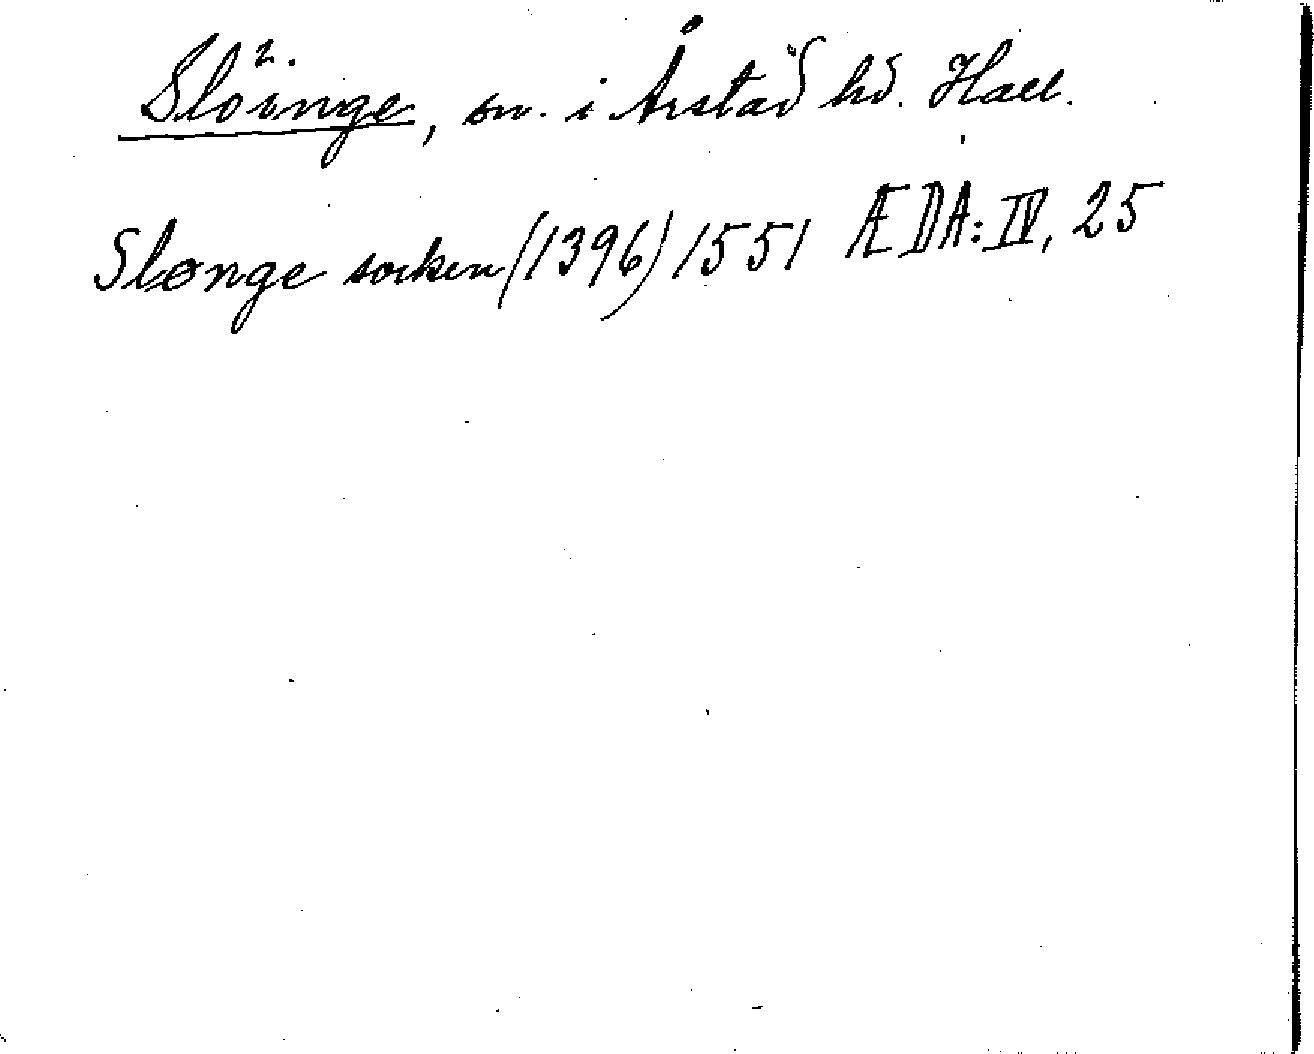 Slöinge, sn. i Årstad hd. Hall.
Slønge socken (1396) 1551 ÆDA: IV, 25